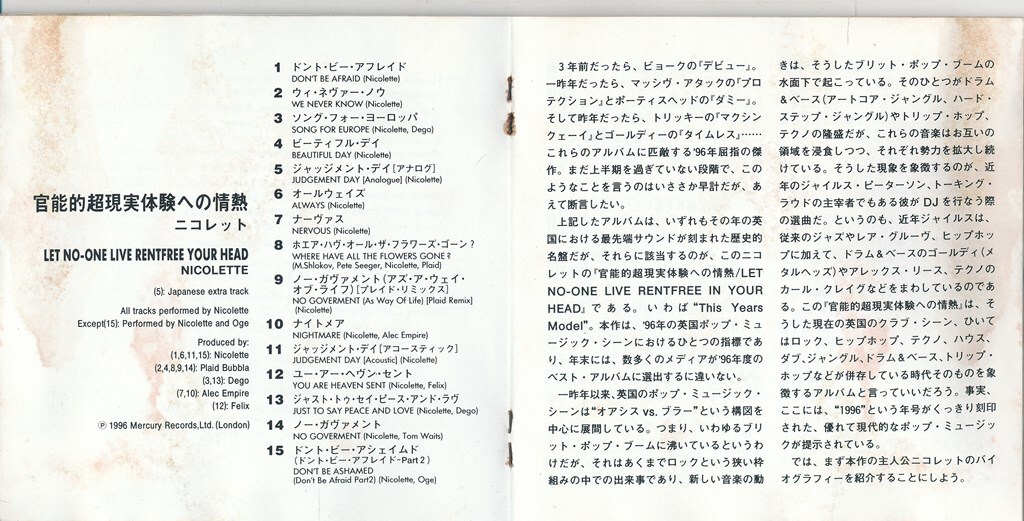 官能的超現実体験への情熱
ニコレット
LET NO-ONE LIVE RENTFREE YOUR HEAD
NICOLETTE
(5): Japanese extra track
All tracks performed by Nicolette
Except(15): Performed by Nicolette and Oge
Produced by:
(1,6,11,15): Nicolette
(2,4,8,9,14): Plaid Bubbla
(3,13): Dego
(7,10): Alec Empire
(12): Felix
Ⓟ 1996 Mercury Records,Ltd. (London)
1 ドント・ビー・アフレイド
DON'T BE AFRAID (Nicolette)
2 ウィ・ネヴァー・ノウ
WE NEVER KNOW (Nicolette)
3 ソング・フォー・ヨーロッパ
SONG FOR EUROPE (Nicolette, Dego)
4 ビーティフル・デイ
BEAUTIFUL DAY (Nicolette)
5 ジャッジメント・デイ[アナログ]
JUDGEMENT DAY [Analogue] (Nicolette)
6 オールウェイズ
ALWAYS (Nicolette)
7 ナーヴァス
NERVOUS (Nicolette)
8 ホエア・ハヴ・オール・ザ・フラワーズ・ゴーン?
WHERE HAVE ALL THE FLOWERS GONE?
(M.Shlokov, Pete Seeger, Nicolette, Plaid)
9 ノー・ガヴァメント(アズ・ア・ウェイ・
オブ・ライフ)[プレイド・リミックス]
NO GOVERMENT (As Way Of Life) [Plaid Remix]
(Nicolette)
10 ナイトメア
NIGHTMARE (Nicolette, Alec Empire)
11 ジャッジメント・デイ[アコースティック]
JUDGEMENT DAY [Acoustic] (Nicolette)
12 ユー・アー・ヘヴン・セント
YOU ARE HEAVEN SENT (Nicolette, Felix)
13 ジャスト・トゥ・セイ・ピース・アンド・ラヴ
JUST TO SAY PEACE AND LOVE (Nicolette, Dego)
14 ノー・ガヴァメント
NO GOVERMENT (Nicolette, Tom Waits)
15 ドント・ビー・アシェイムド
(ドント・ビー・アフレイド-Part 2)
DON'T BE ASHAMED
(Don't Be Afraid Part2) (Nicolette, Oge)
3年前だったら、ビョークの『デビュー』。
一昨年だったら、マッシヴ・アタックの『プロ
テクション』とポーティスヘッドの『ダミー』。
そして昨年だったら、トリッキーの『マクシン
クェーイ』とゴールディーの『タイムレス』……
これらのアルバムに匹敵する'96年屈指の傑
作。まだ上半期を過ぎていない段階で、この
ようなことを言うのはいささか早計だが、あ
えて断言したい。
上記したアルバムは、いずれもその年の英
国における最先端サウンドが刻まれた歴史的
名盤だが、それらに該当するのが、このニコ
レットの『官能的超現実体験への情熱/LET
NO-ONE LIVE RENTFREE IN YOUR
HEAD』である。いわば“This Years
Model”。本作は、'96年の英国ポップ・ミュ
ージック・シーンにおけるひとつの指標であ
り、年末には、数多くのメディアが'96年度の
ベスト・アルバムに選出するに違いない。
一昨年以来、英国のポップ・ミュージック・
シーンは“オアシス vs. ブラー”という構図を
中心に展開している。つまり、いわゆるブリ
ット・ポップ・ブームに沸いているというわ
けだが、それはあくまでロックという狭い枠
組みの中での出来事であり、新しい音楽の動
きは、そうしたブリット・ポップ・ブームの
水面下で起こっている。そのひとつがドラム
&ベース(アートコア・ジャングル、ハード・
ステップ・ジャングル)やトリップ・ホップ、
テクノの隆盛だが、これらの音楽はお互いの
領域を浸食しつつ、それぞれ勢力を拡大し続
けている。そうした現象を象徴するのが、近
年のジャイルス・ピーターソン、トーキング・
ラウドの主宰者でもある彼が DJ を行なう際
の選曲だ。というのも、近年ジャイルスは、
従来のジャズやレア・グルーヴ、ヒップホッ
プに加えて、ドラム&ベースのゴールディ(メ
タルヘッズ)やアレックス・リース、テクノの
カール・クレイグなどをまわしているのであ
る。この『官能的超現実体験への情熱』は、そ
うした現在の英国のクラブ・シーン、ひいて
はロック、ヒップホップ、テクノ、ハウス、
ダブ、ジャングル、ドラム&ベース、トリップ・
ホップなどが併存している時代そのものを象
徴するアルバムと言っていいだろう。事実、
ここには、“1996”という年号がくっきり刻印
された、優れて現代的なポップ・ミュージッ
クが提示されている。
では、まず本作の主人公ニコレットのバイ
オグラフィーを紹介することにしよう。